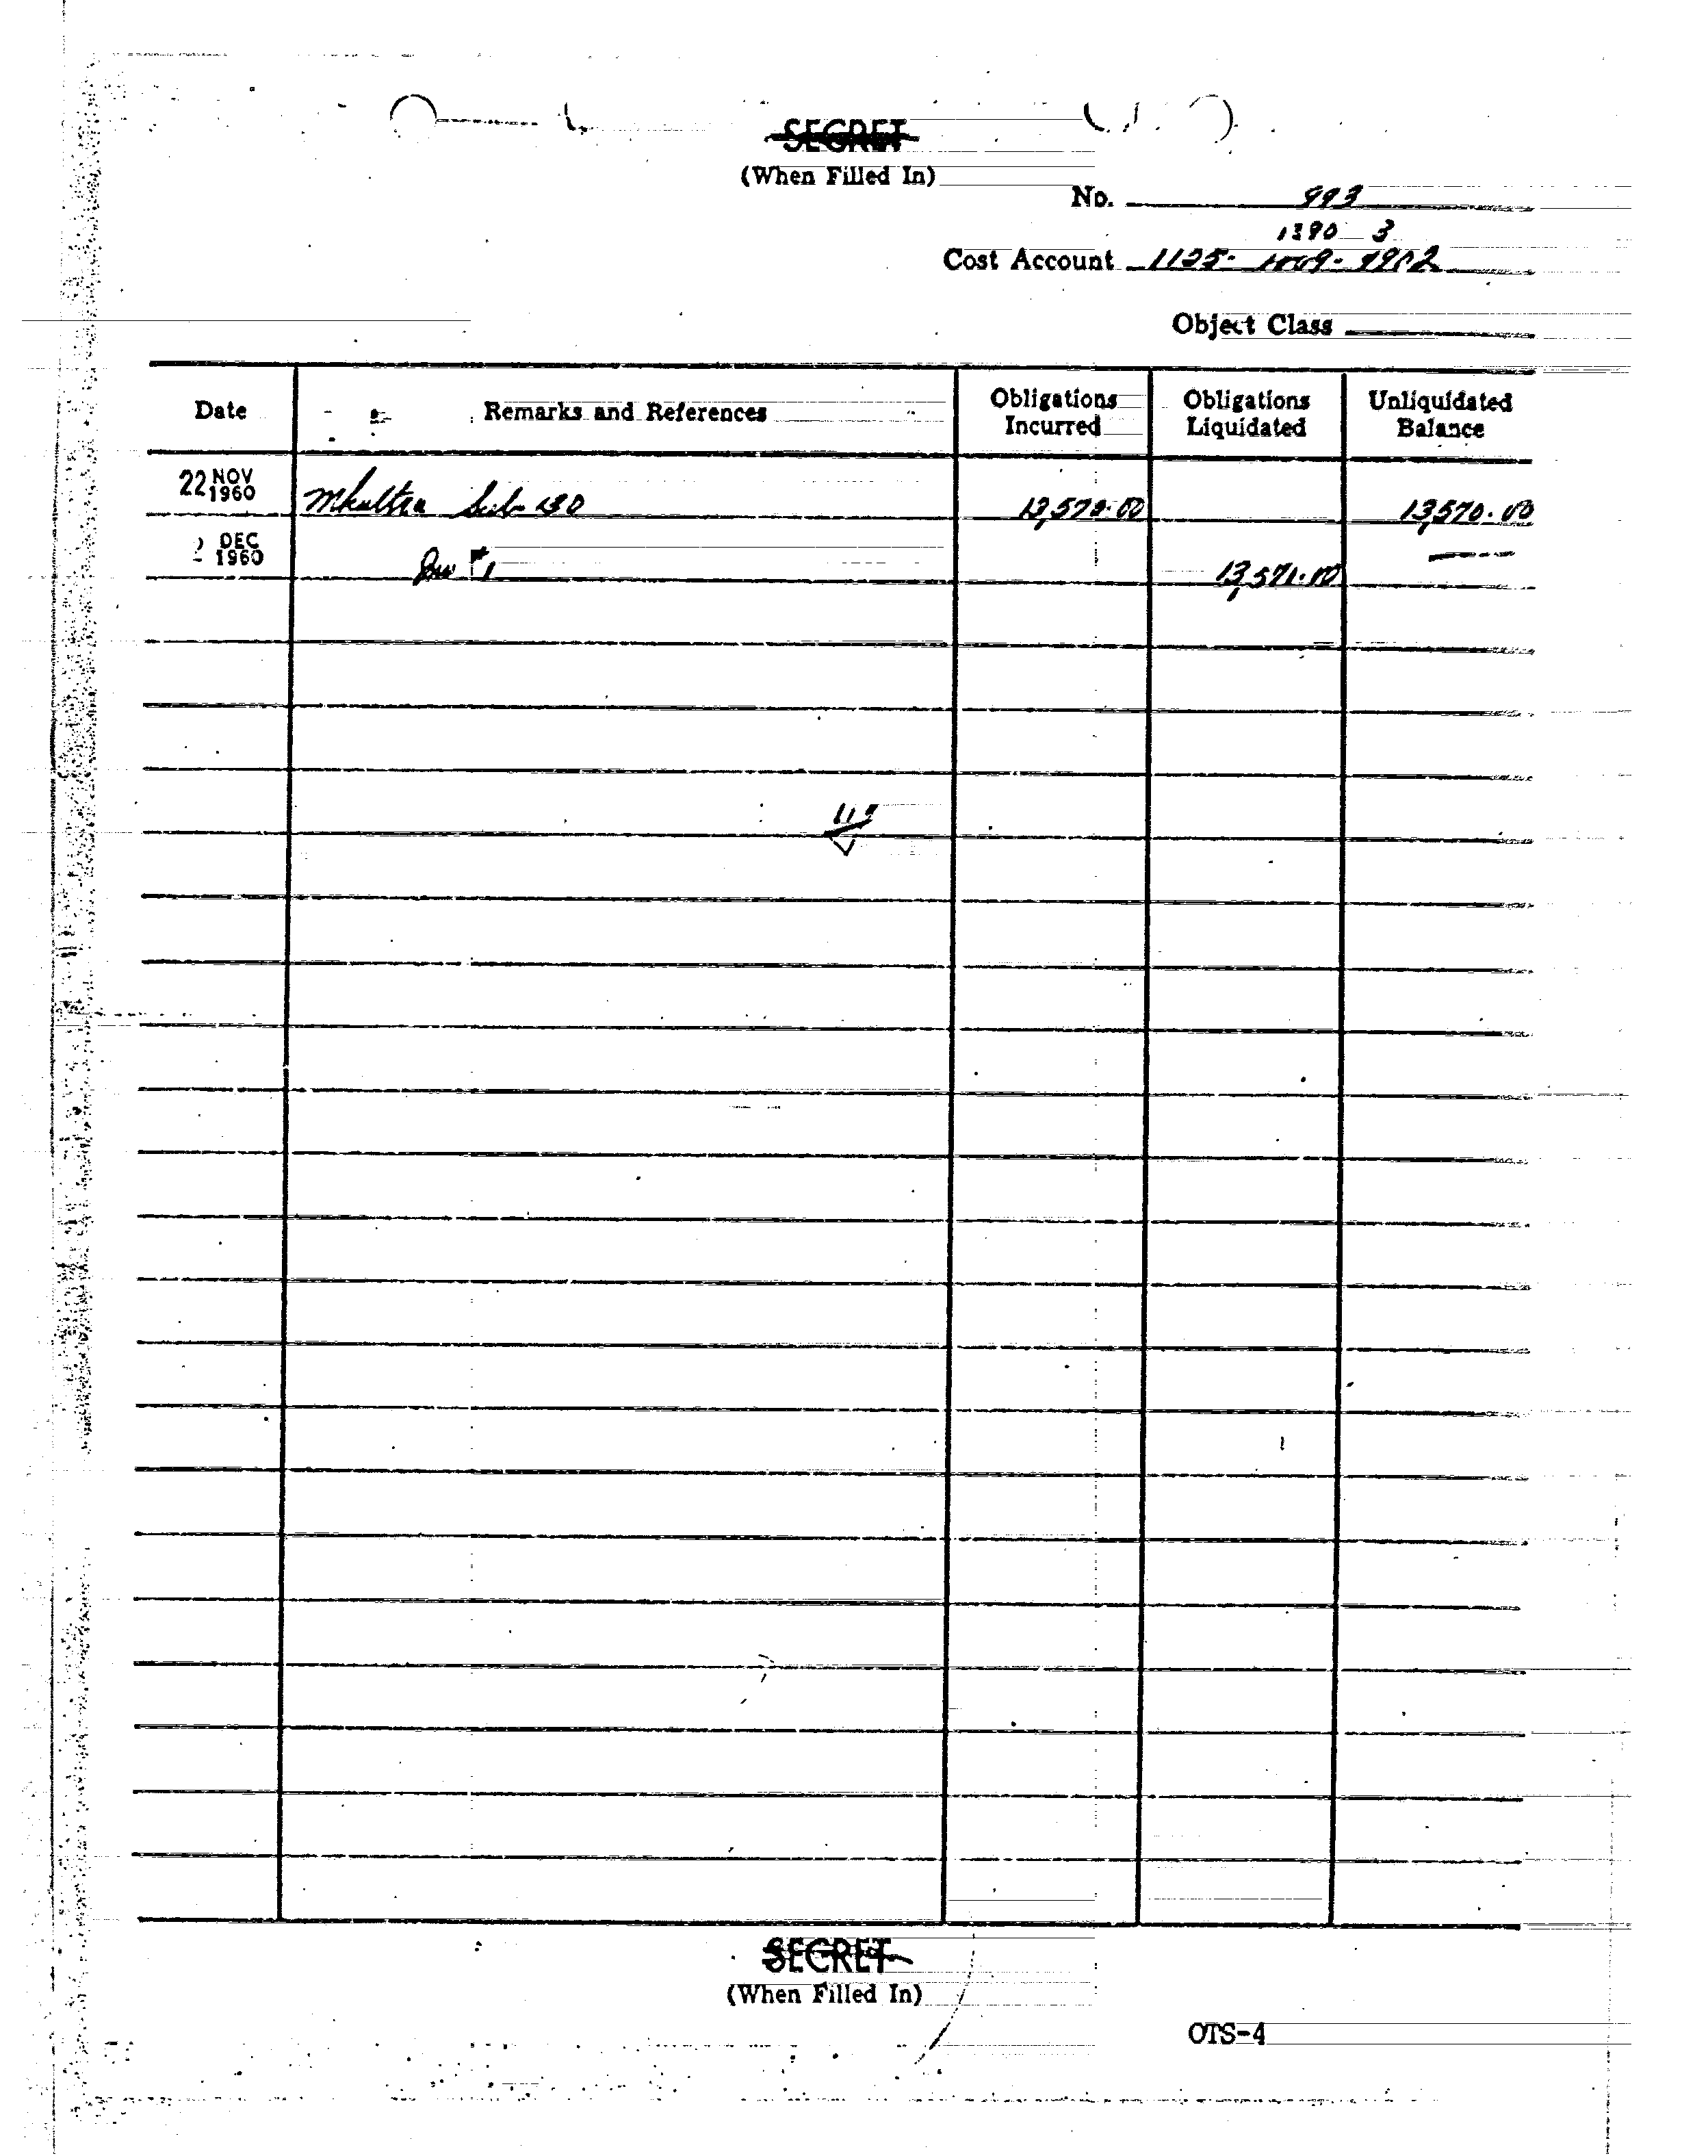 SECRET
(When Filled In)
No. 993
1390 3
Cost Account 1125- 1009- 9902
Object Class
Date Remarks and References Obligations Incurred Obligations Liquidated Unliquidated Balance
22 NOV 1960 Mkultra Sub- 130 13,570.00 13,570.00
2 DEC 1960 Inv #1 13,570.00
SECRET
(When Filled In)
OTS-4